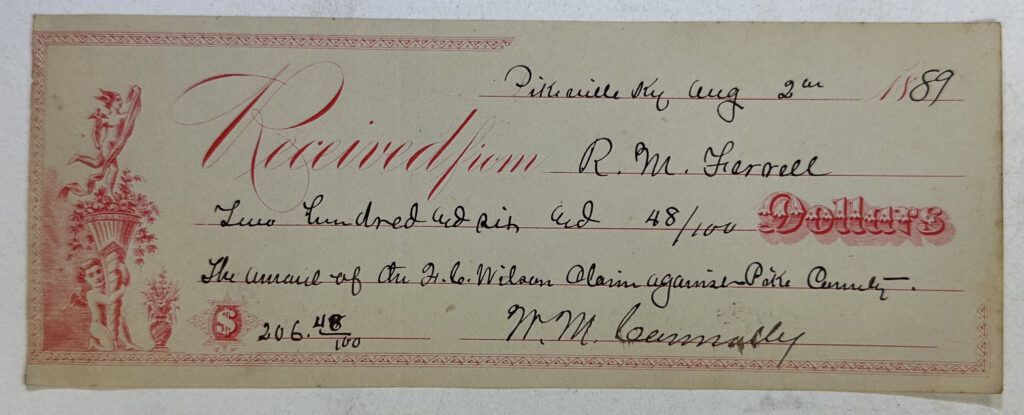 Pikeville Ky Aug 2nd 1889
Received from R. M. Ferrell
Two hundred and six and 48/100 Dollars
The amount of the F. C. Wilson Claim against Pike County.
$ 206.48/100 W. M. Connolly